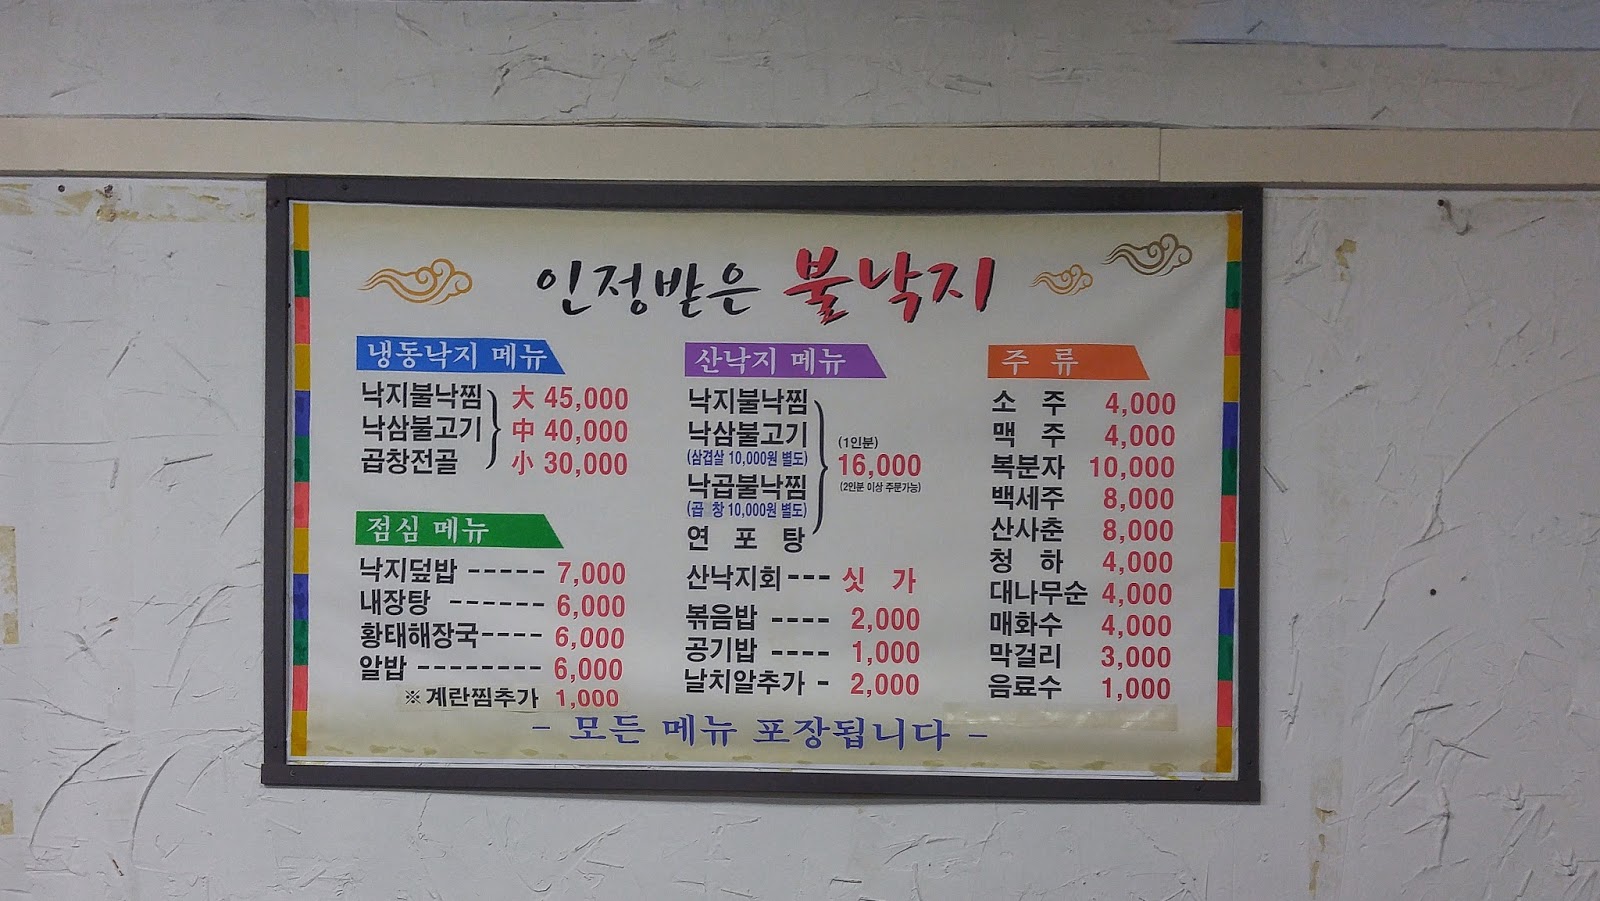 인정받은 불낙지
냉동낙지 메뉴
낙지불낙찜
낙삼불고기
곱창전골
大 45,000
中 40,000
小 30,000
점심 메뉴
낙지덮밥 ----- 7,000
내장탕 ------ 6,000
황태해장국---- 6,000
알밥 -------- 6,000
※계란찜추가 1,000
산낙지 메뉴
낙지불낙찜
낙삼불고기
(삼겹살 10,000원 별도)
낙곱불낙찜
(곱 창 10,000원 별도)
연 포 탕
(1인분)
16,000
(2인분 이상 주문가능)
산낙지회--- 싯 가
볶음밥 ---- 2,000
공기밥 ---- 1,000
날치알추가 - 2,000
주 류
소 주 4,000
맥 주 4,000
복분자 10,000
백세주 8,000
산사춘 8,000
청 하 4,000
대나무순 4,000
매화수 4,000
막걸리 3,000
음료수 1,000
- 모든 메뉴 포장됩니다 -